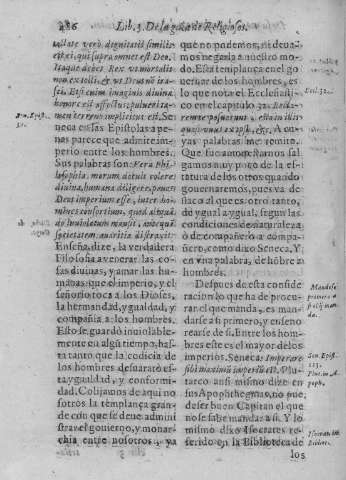 286 Lib. 3. De la guia de Religiosos.
vilitate verò dignitati similis
est ei, qui supra omnes est Deo.
Itaque decet Rex vt mortalis
non extolli, & vt Deus nõ ira-
sci. Etsi enim imaginis diuina
honore est affectus, puluere ta-
men terreno implicitus est. Se
neca en sus Epistolas a pe-
nas parece que admite im-
perio entre los hombres.
Sus palabras son: Vera Phi-
losophia, marum dotuit colere
diuina, humana diligere, penes
Deos imperium esse, inter ho-
mines consortium, quod aliquã-
do inuiolatum mansit, antequã
societatem auaritia distraxit.
Enseña, dize, la verdadera
Filosofia a venerar las co-
sas diuinas, y amar las hu-
manas: que el imperio, y el
señorio toca a los Dioses,
la hermandad, igualdad, y
compañia a los hombres.
Esto se guardò inuiolable-
mente en algũ tiempo, has-
ta tanto que la codicia de
los hombres desuaratò es-
ta ygualdad, y conformi-
dad. Colijamos de aqui no
sotros la templança gran-
de con que se deue admini
strar el gouierno, y monar-
chia entre nosotros: ya
que no podemos, ni deua-
mos negarla a nuestro mo-
do. Esta templança en el go
uernar de los hombres, es
lo que nota el Ecclesiasti-
co en el capitulo 32. Recto-
rem te posuerunt, esto in illis
quasi vnus ex ipsis, &c. A cu-
yas palabras me remito.
Que fue amonestarnos sal
gamos muy poco de la es-
tatura de los otros quando
gouernaremos, pues va de
flaco al que es otro tanto,
de ygual a ygual, segun las
condiciones de naturaleza
ò de compañero a compa-
ñero, como dixo Seneca, Y
en vna palabra, de hõbre a
hombres.
Despues de esta conside
racion lo que ha de procu-
rar el que manda, es man-
darse a si primero, y enseño
rearse de si. Entre los hom-
bres este es el mayor de los
imperios. Seneca: Imperare
sibi maximũ imperiũ est. Plu-
tarco ansi mismo dize en
sus Apophthegmas, no pue
de ser buen Capitan el que
no se sabe mandar a si. Y lo
mismo dixo Isocrates re-
ferido en la Biblioteca de
los
Eccl. 32.
Mandese
primero a
si el q̃ man-
da.
Sen. Epist.
113.
Plut. in A-
poph.